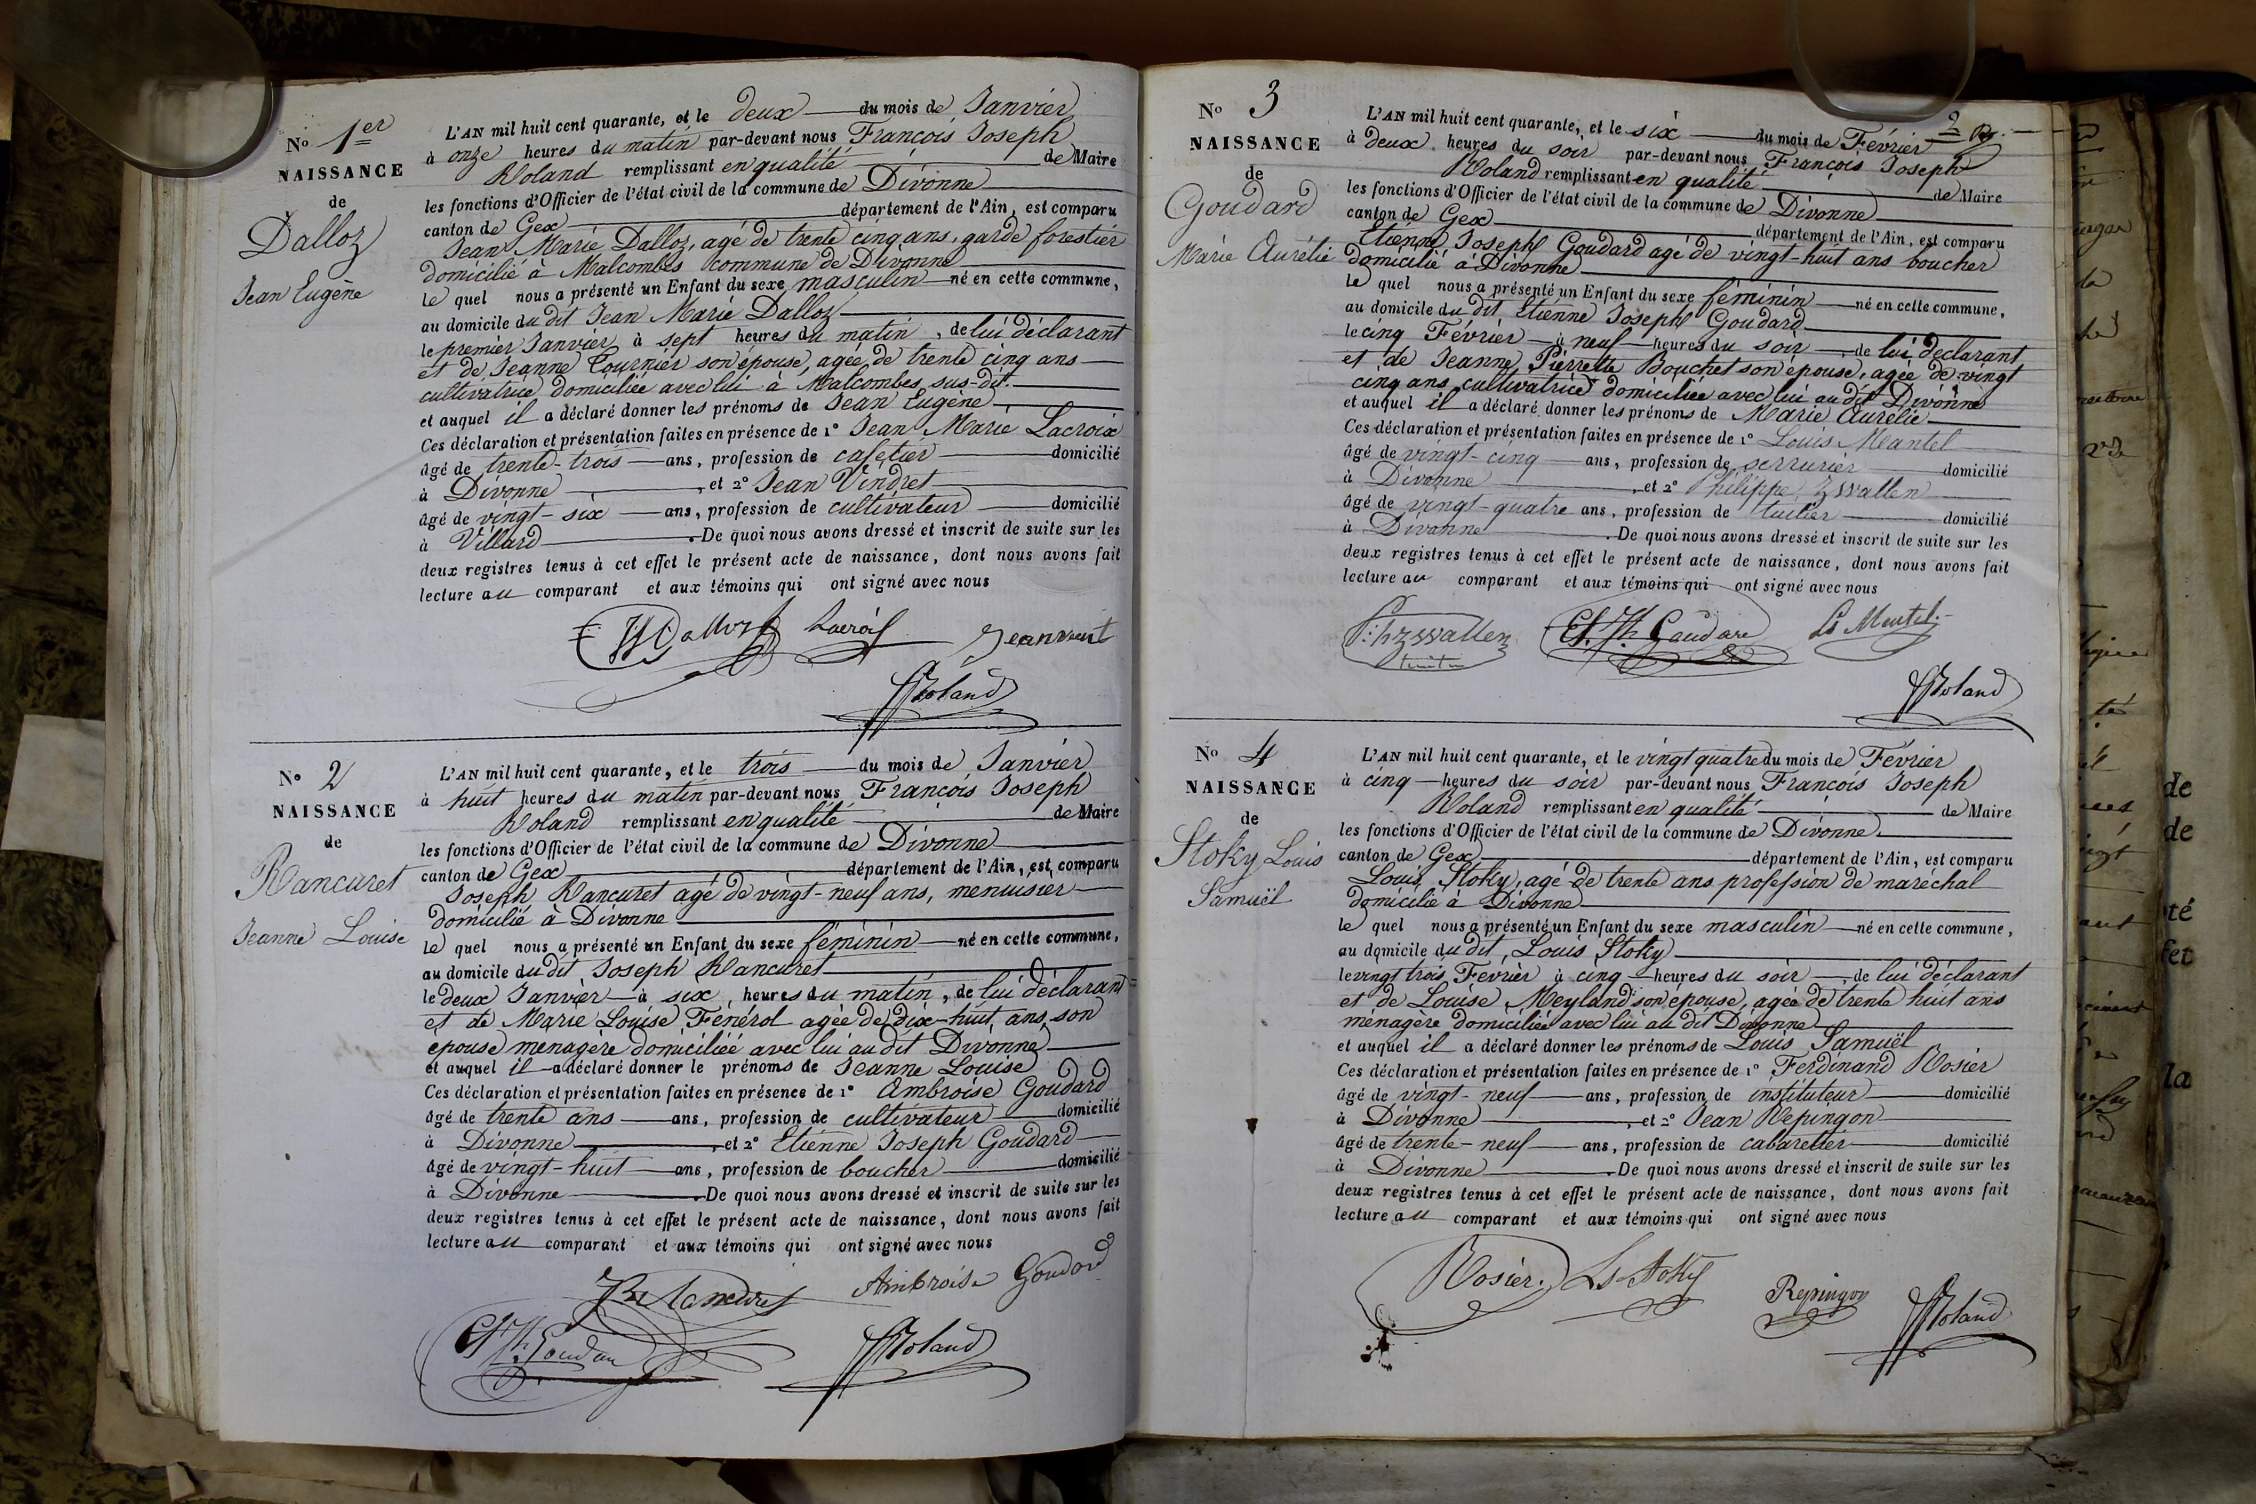 No 1er
NAISSANCE
de
Dalloz
Jean Eugène
L'AN mil huit cent quarante, et le deux du mois de Janvier
à onze heures du matin par-devant nous François Joseph
Roland remplissant en qualité de Maire
les fonctions d'Officier de l'état civil de la commune de Divonne
canton de Gex département de l'Ain, est comparu
Jean Marie Dalloz, agé de trente cinq ans, garde forestier
domicilié à Malcombes commune de Divonne
le quel nous a présenté un Enfant du sexe masculin né en cette commune,
au domicile du dit Jean Marie Dalloz
le premier Janvier à sept heures du matin, de lui déclarant
et de Jeanne Tournier son épouse, agée de trente cinq ans
cultivatrice domiciliée avec lui à Malcombes sus-dit.
et auquel il a déclaré donner les prénoms de Jean Eugène
Ces déclaration et présentation faites en présence de 1º Jean Marie Lacroix
âgé de trente-trois ans, profession de cafetier domicilié
à Divonne, et 2º Jean Vindret
âgé de vingt-six ans, profession de cultivateur domicilié
à Villard. De quoi nous avons dressé et inscrit de suite sur les
deux registres tenus à cet effet le présent acte de naissance, dont nous avons fait
lecture au comparant et aux témoins qui ont signé avec nous
Dalloz Lacroix
Roland
No 2
NAISSANCE
de
Rancuret
Jeanne Louise
L'AN mil huit cent quarante, et le trois du mois de Janvier
à huit heures du matin par-devant nous François Joseph
Roland remplissant en qualité de Maire
les fonctions d'Officier de l'état civil de la commune de Divonne
canton de Gex département de l'Ain, est comparu
Joseph Rancuret agé de vingt-neuf ans, menuisier
domicilié à Divonne
le quel nous a présenté un Enfant du sexe féminin né en cette commune,
au domicile du dit Joseph Rancuret
le deux Janvier à six heures du matin, de lui déclarant
et de Marie Louise Fenérol agée de dix-huit ans son
épouse ménagère domiciliée avec lui au dit Divonne
et auquel il a déclaré donner le prénoms de Jeanne Louise
Ces déclaration et présentation faites en présence de 1º Ambroise Goudard
âgé de trente ans ans, profession de cultivateur domicilié
à Divonne, et 2º Etienne Joseph Goudard
âgé de vingt-huit ans, profession de boucher domicilié
à Divonne. De quoi nous avons dressé et inscrit de suite sur les
deux registres tenus à cet effet le présent acte de naissance, dont nous avons fait
lecture au comparant et aux témoins qui ont signé avec nous
Rancuret Ambroise Goudard
Roland
2
No 3
NAISSANCE
de
Goudard
Marie Aurélie
L'AN mil huit cent quarante, et le six du mois de Février
à deux heures du soir par-devant nous François Joseph
Roland remplissant en qualité de Maire
les fonctions d'Officier de l'état civil de la commune de Divonne
canton de Gex département de l'Ain, est comparu
Etienne Joseph Goudard agé de vingt-huit ans boucher
domicilié à Divonne
le quel nous a présenté un Enfant du sexe féminin né en cette commune,
au domicile du dit Etienne Joseph Goudard
le cinq Février à neuf heures du soir, de lui déclarant
et de Jeanne Pierrette Bouchet son épouse, agée de vingt
cinq ans, cultivatrice domiciliée avec lui au dit Divonne
et auquel il a déclaré donner les prénoms de Marie Aurélie
Ces déclaration et présentation faites en présence de 1º Louis Mantel
âgé de vingt-cinq ans, profession de serrurier domicilié
à Divonne, et 2º Philippe Zwallen
âgé de vingt-quatre ans, profession de tuilier domicilié
à Divonne. De quoi nous avons dressé et inscrit de suite sur les
deux registres tenus à cet effet le présent acte de naissance, dont nous avons fait
lecture au comparant et aux témoins qui ont signé avec nous
Ls Mentel
Roland
No 4
NAISSANCE
de
Stoky Louis
Samuël
L'AN mil huit cent quarante, et le vingt quatre du mois de Février
à cinq heures du soir par-devant nous François Joseph
Roland remplissant en qualité de Maire
les fonctions d'Officier de l'état civil de la commune de Divonne
canton de Gex département de l'Ain, est comparu
Louis Stoky, agé de trente ans profession de maréchal
domicilié à Divonne
le quel nous a présenté un Enfant du sexe masculin né en cette commune,
au domicile du dit, Louis Stoky
le vingt trois Fevrier à cinq heures du soir, de lui déclarant
et de Louise Meyland son épouse, agée de trente huit ans
ménagère domiciliée avec lui au dit Divonne
et auquel il a déclaré donner les prénoms de Louis Samuël
Ces déclaration et présentation faites en présence de 1º Ferdinand Rosier
âgé de vingt-neuf ans, profession de instituteur domicilié
à Divonne, et 2º Jean Repingon
âgé de trente-neuf ans, profession de cabaretier domicilié
à Divonne. De quoi nous avons dressé et inscrit de suite sur les
deux registres tenus à cet effet le présent acte de naissance, dont nous avons fait
lecture au comparant et aux témoins qui ont signé avec nous
Rosier. Ls Stoky Repingon
Roland
de
de
té
fet
la